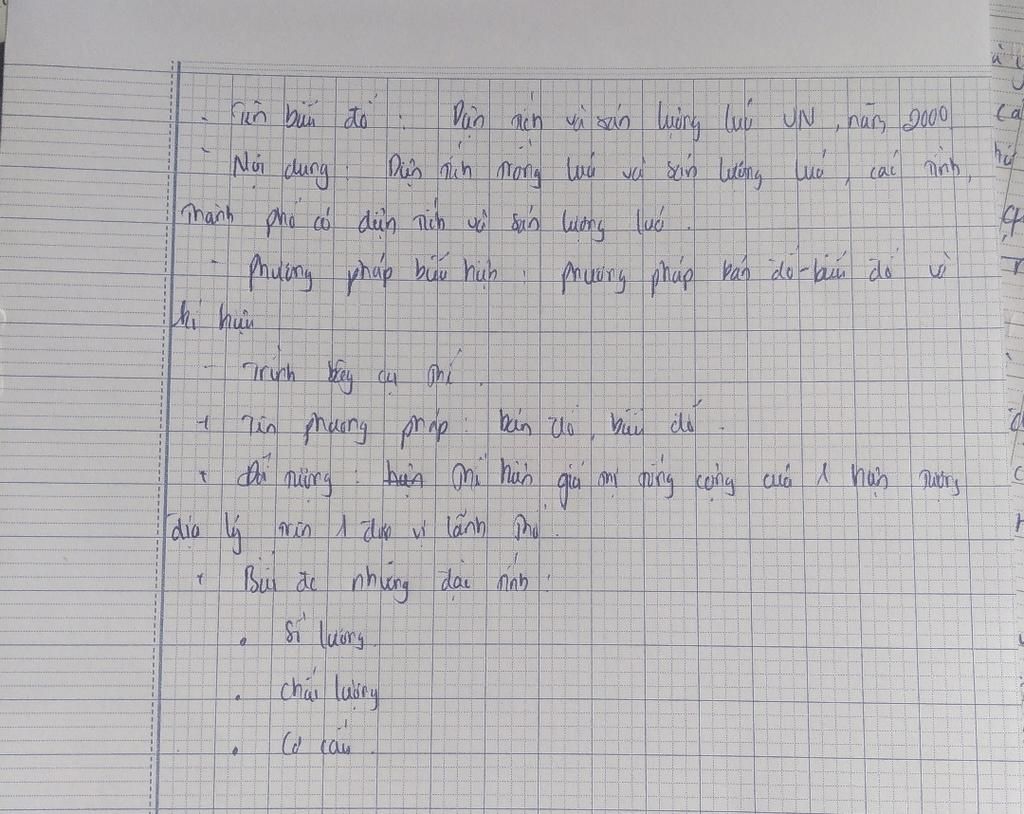 - Tên biểu đồ : Diện tích và sản lượng lúa VN, năm 2000
- Nội dung : Diện tích trồng lúa và sản lượng lúa, các tỉnh,
Thành phố có diện tích và sản lượng lúa.
- Phương pháp biểu hiện : phương pháp bản đồ-biểu đồ và
kí hiệu
- Trình bày cụ thể.
+ Tên phương pháp : bản đồ, biểu đồ.
+ Đối tượng : thể hiện giá trị tổng cộng của 1 hiện tượng
địa lý trên 1 đơn vị lãnh thổ.
+ Biết đc những đặc tính :
• Số lượng
• chất lượng
• Cơ cấu.